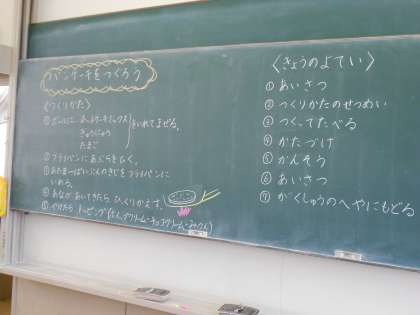 パンケーキをつくろう
〈つくりかた〉
① ボールに ホットケーキミックス
ぎゅうにゅう
たまご
をいれてまぜる。
② フライパンにあぶらをひく。
③ おたまいっぱいぶんのきじをフライパンに
いれる。
④ あながあいてきたら ひっくりかえす。
⑤ やけたら トッピング
〈きょうのよてい〉
① あいさつ
② つくりかたのせつめい
③ つくってたべる
④ かたづけ
⑤ かんそう
⑥ あいさつ
⑦ がくしゅうのへやにもどる